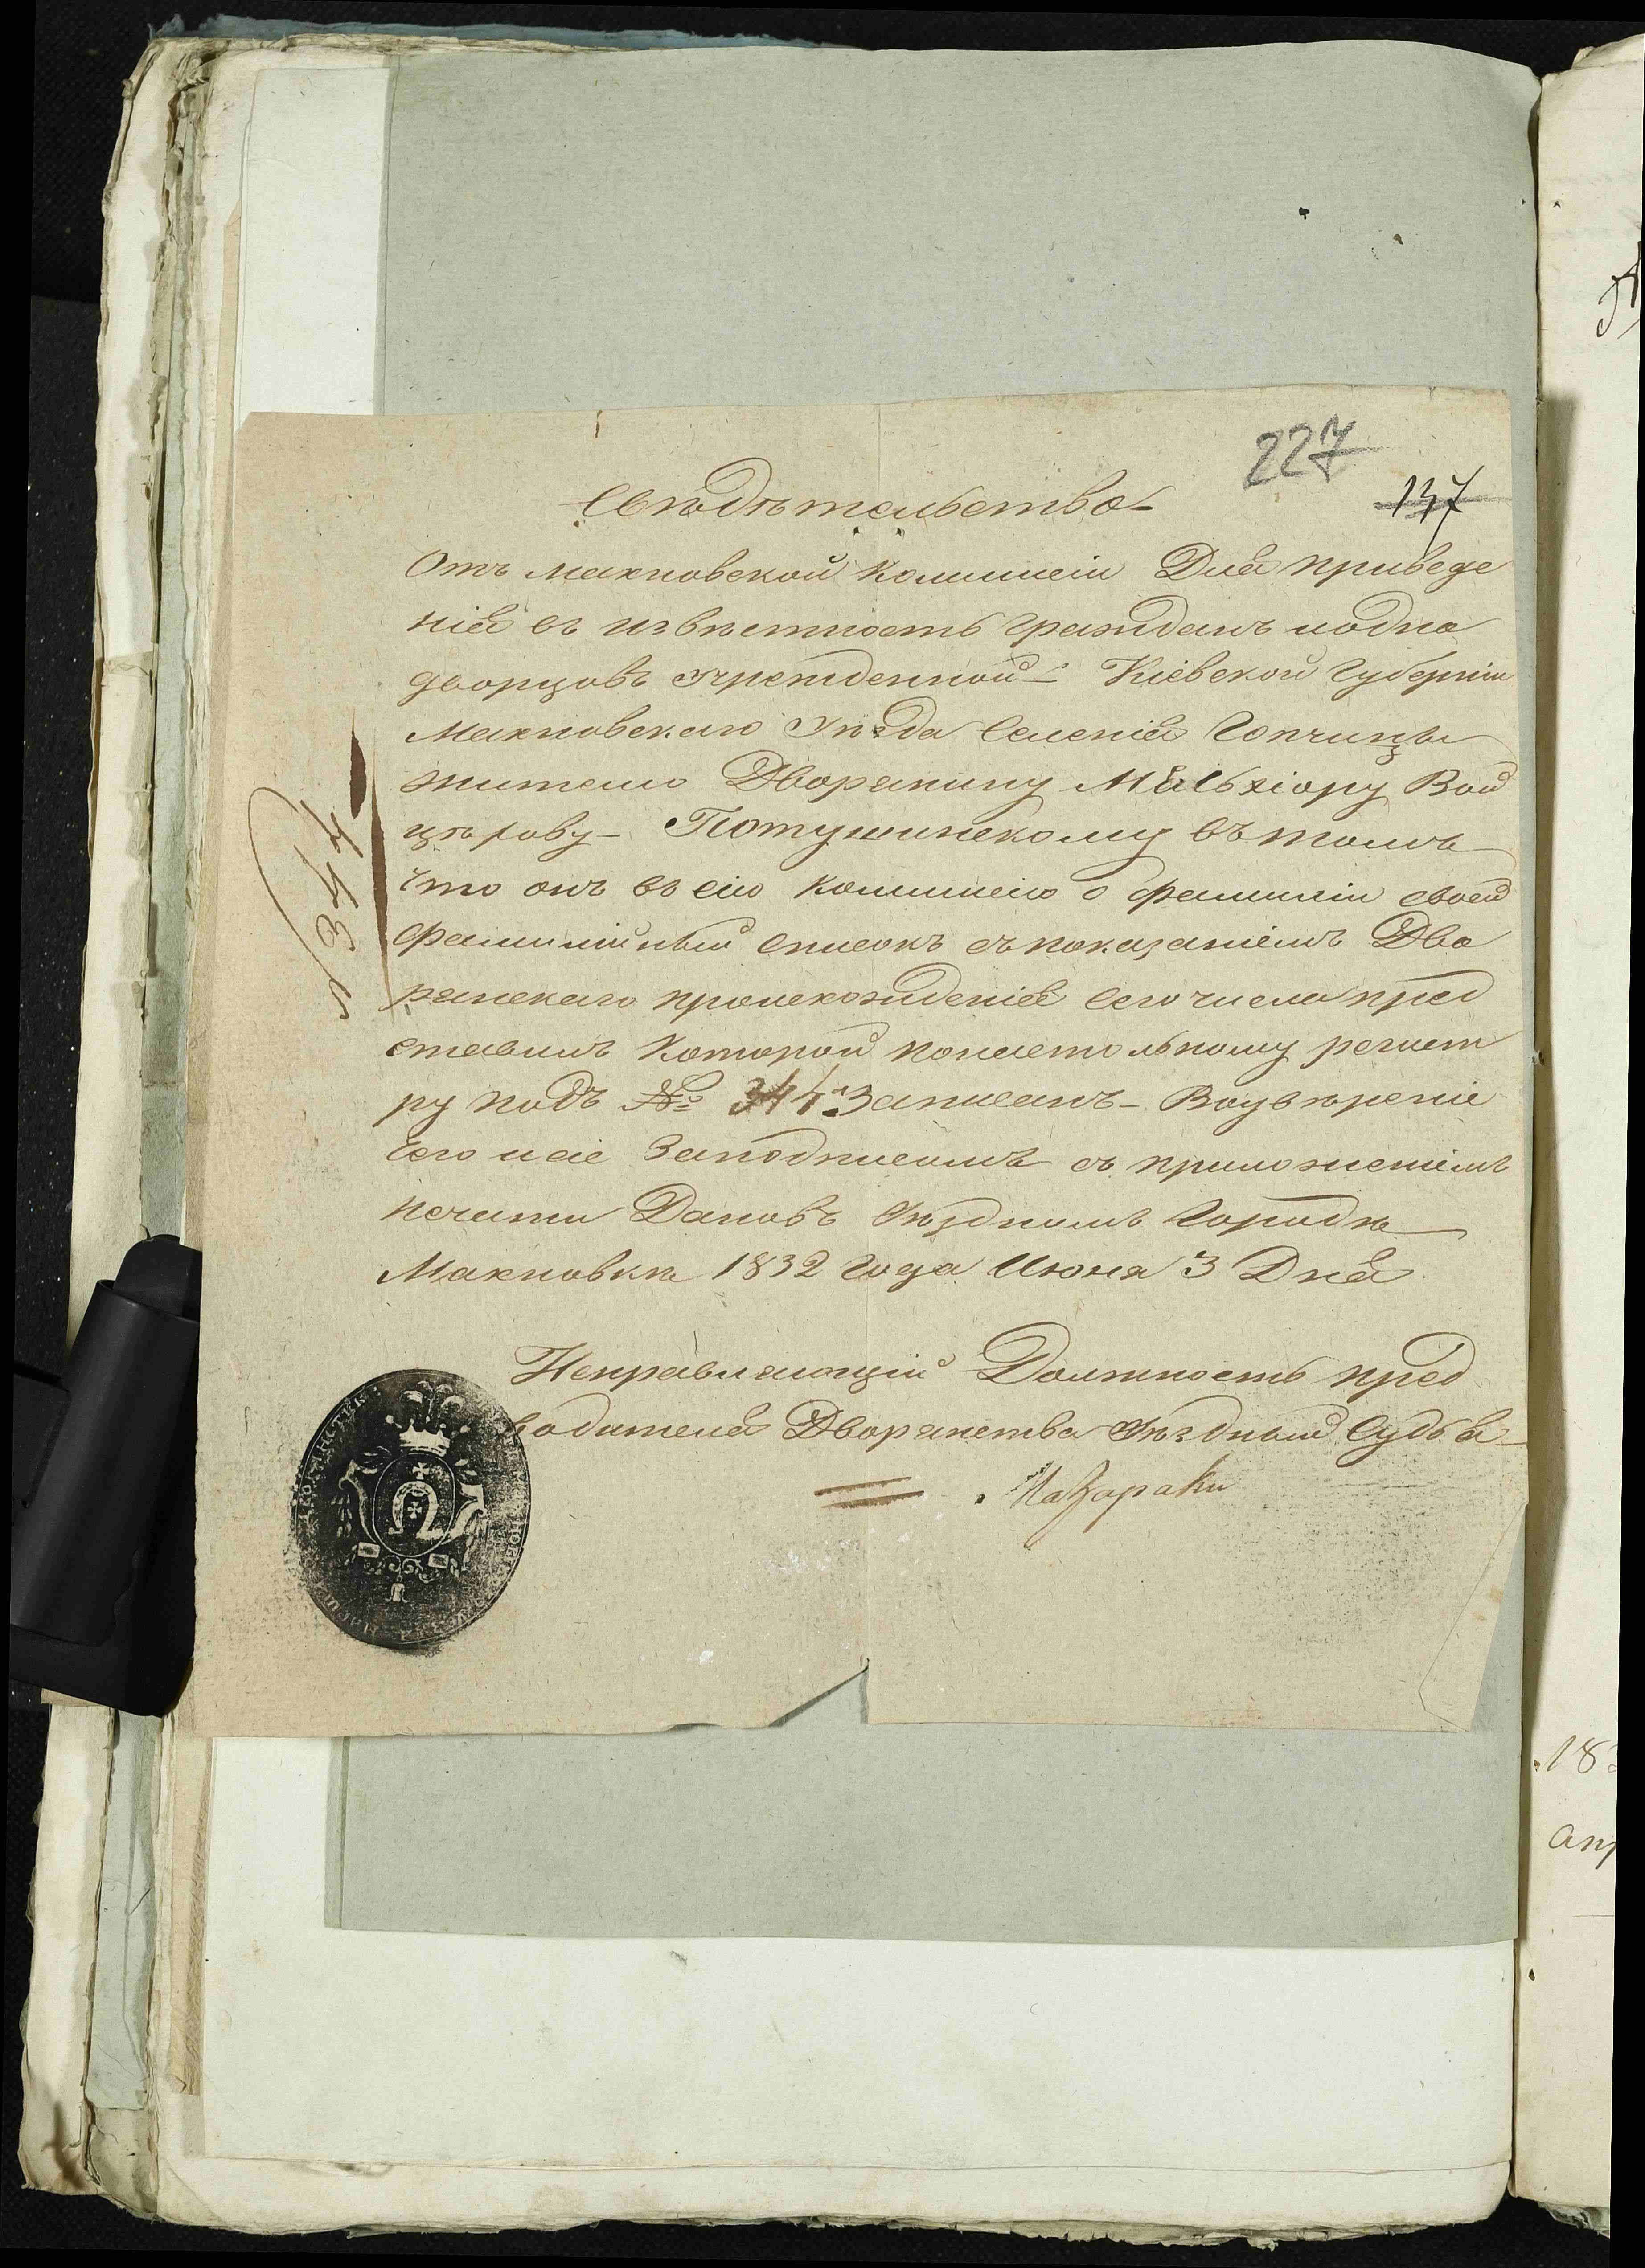 227
147
Свѣдѣтельство
Отъ махновской Коммисіи Для приведе
нія въ извѣстность гражданъ иодно
дворцовъ учрежденной Кіевской Губерніи
Махновскаго Уѣзда Селенія Гопчицы
жителю Дворянину Мельхіору Вой
цѣхову Потушинскому въ томъ
что онъ въ сію Коммисію о фамиліи своей
фамилійный списокъ съ показаніемъ Дво
рянскаго происхожденія сего числа пред
ставилъ Которой понастольному регист
ру подъ № 344 Записанъ Воувѣреніе
чего исіе Заподписомъ съ приложеніемъ
печати Дановъ Уѣздномъ Городѣ
Махновкѣ 1832 Года Июня 3 Дня
Исправляющій Должность пред
водителя Дворянства Уѣздный Судья
344
18
Апр